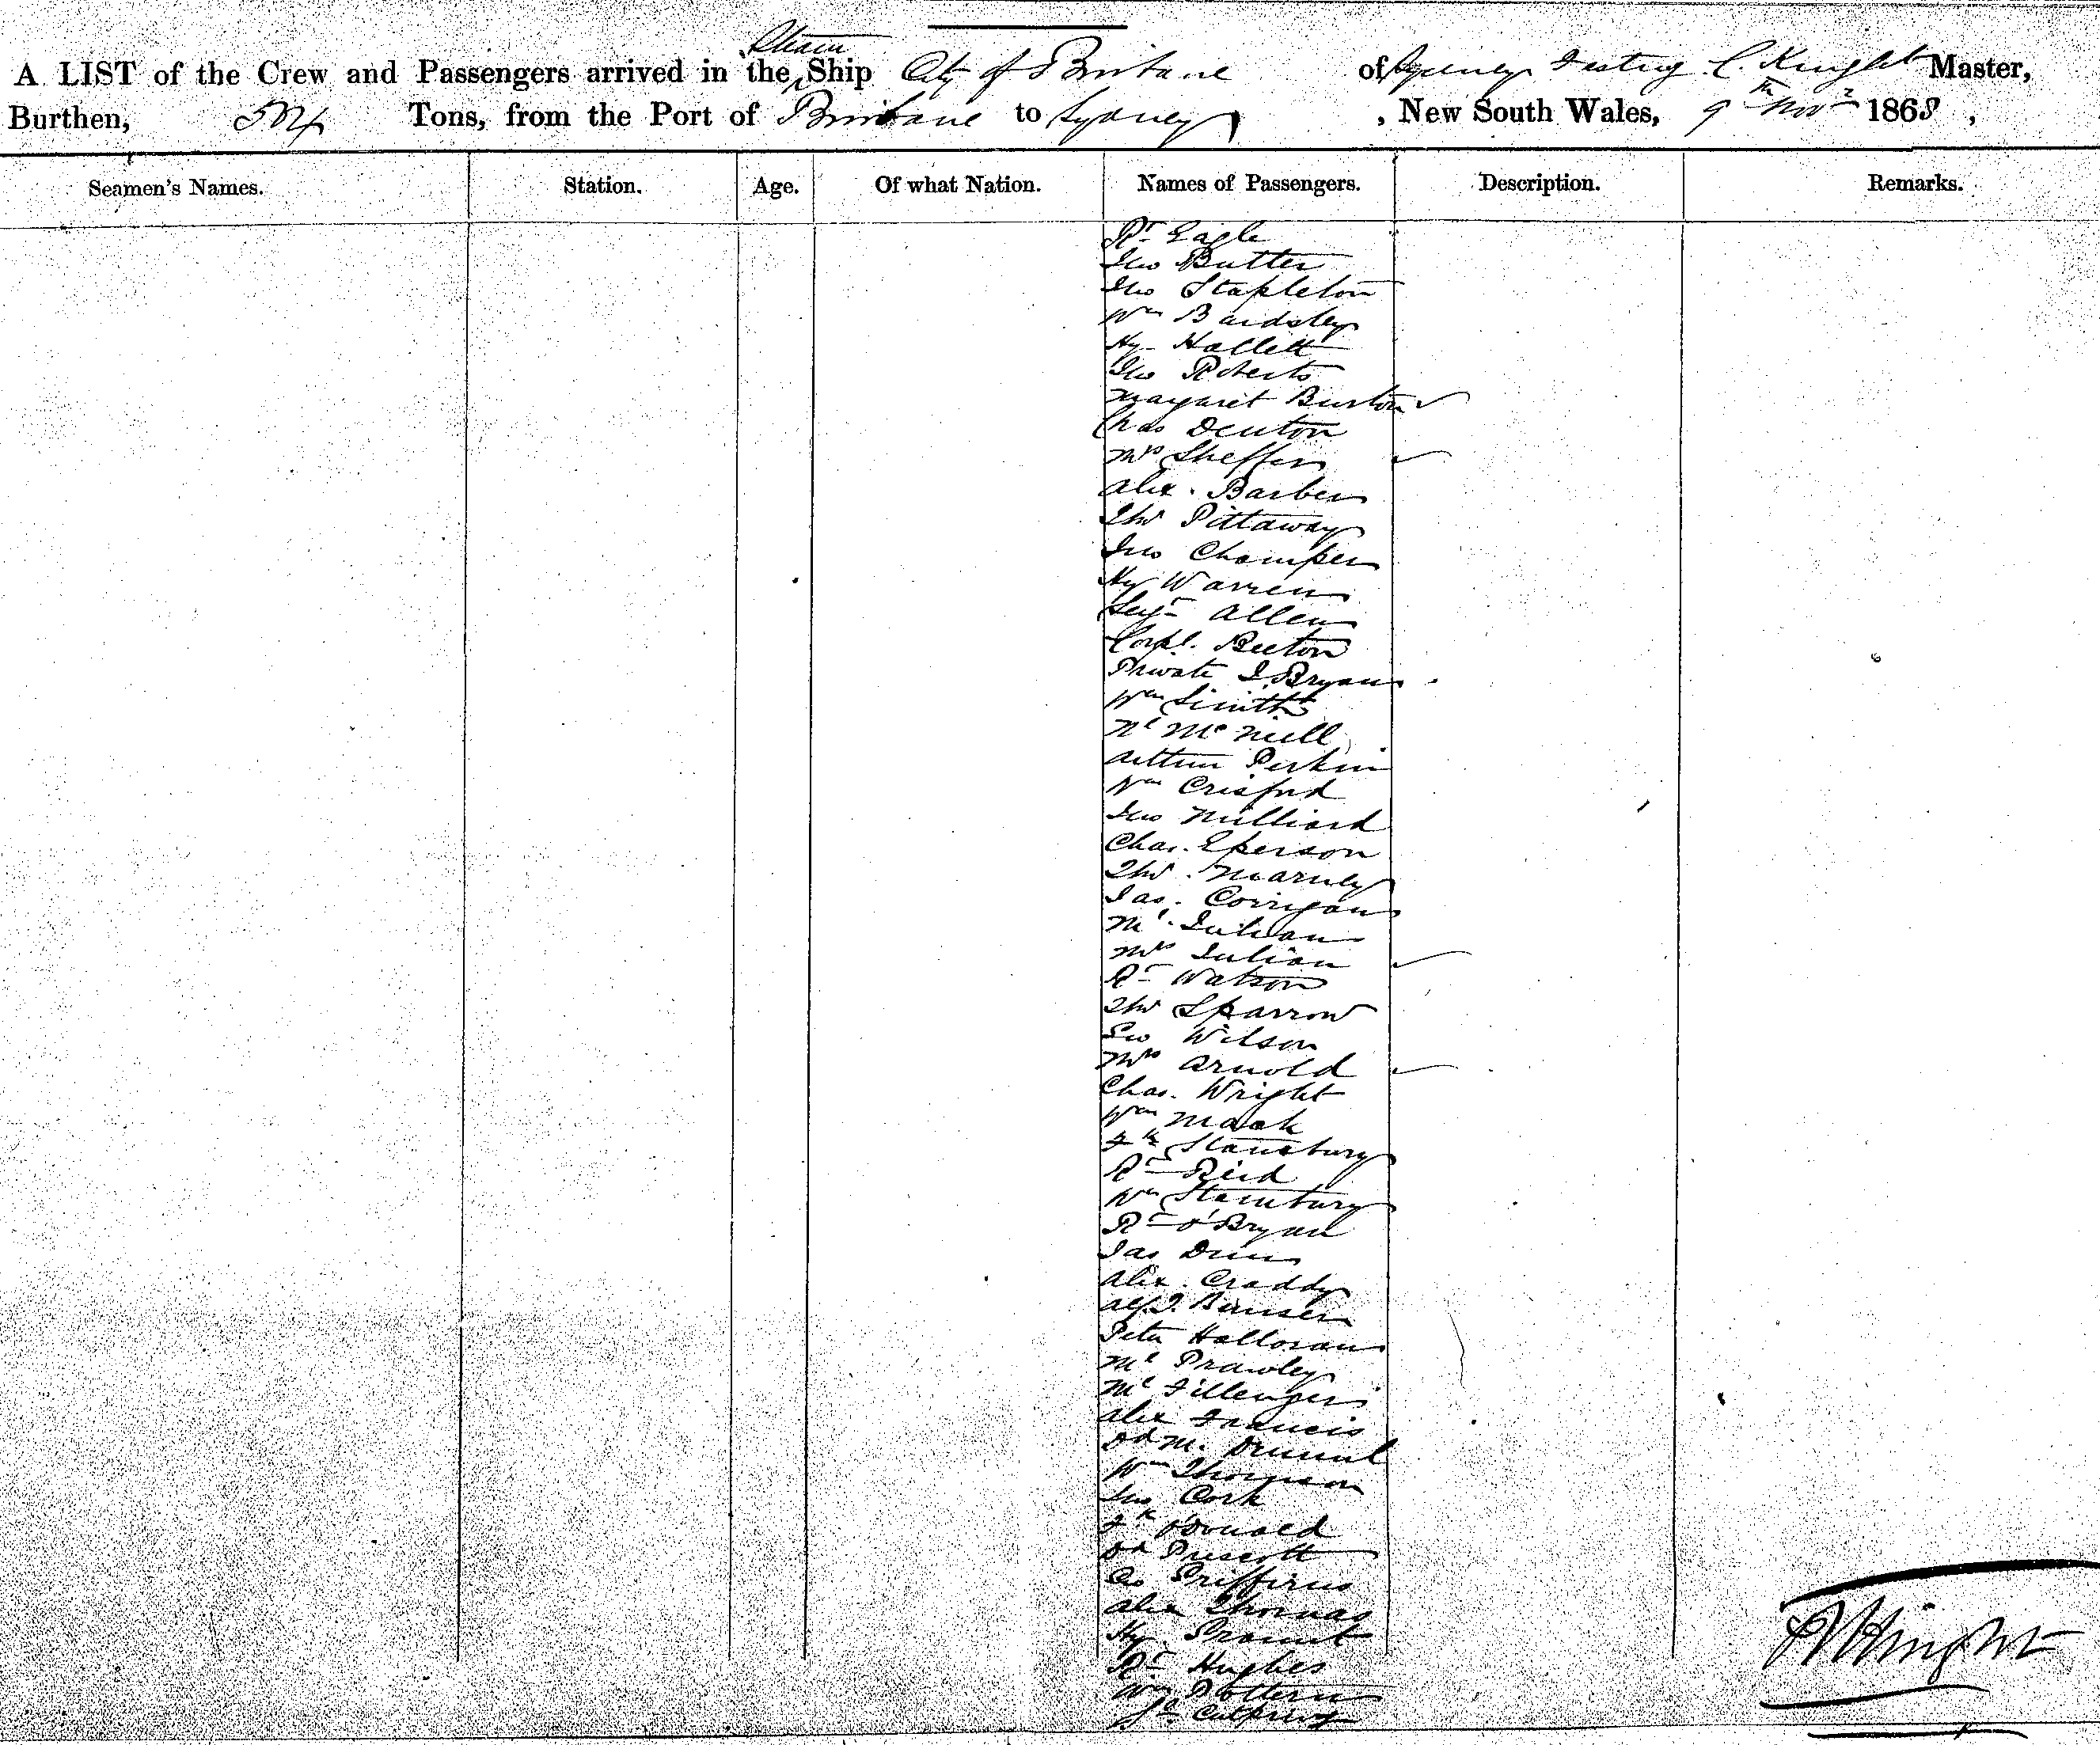 Steam
A LIST of the Crew and Passengers arrived in the Ship City of Brisbane of Sydney C. Knight Master,
Burthen, 504 Tons, from the Port of Brisbane to Sydney, New South Wales, 9th Novr 1868,
Seamen's Names. Station. Age. Of what Nation. Names of Passengers. Description. Remarks.
Rt Eagle
Jno Butter
Jno Stapleton
Wm Bardsley
Hy Hallett
Jno Roberts
Margaret Burton
Chas Denton
Mrs
Alex. Barber
Thos Pittaway
Jno Champen
Hy Warren
Sergt Allen
Corpl. Beeton
Private J. Bryan
Wm Smith
Nl McNeill
Arthur Perkin
Wm Crisford
Jno Milliard
Chas. Eperson
Thos. Marney
Jas. Corrigan
Mr. Julian
Mrs Julian
Rt Watson
Thos Sparrow
Geo Wilson
Mrs Arnold
Chas. Wright
Wm Mack
Fk Stansbury
Rt Reid
Wm Stansbury
Rt O'Bryan
Jas Dunn
Alex. Craddy
Alf J.
Peter Halloran
Ml Prawley
Ml
Alex Francis
Dd M.
Wm Thompson
Jno Cork
Fk O'Donald
Dd Prescott
Alex Thomas
Hy
Rt Hughes
Wm